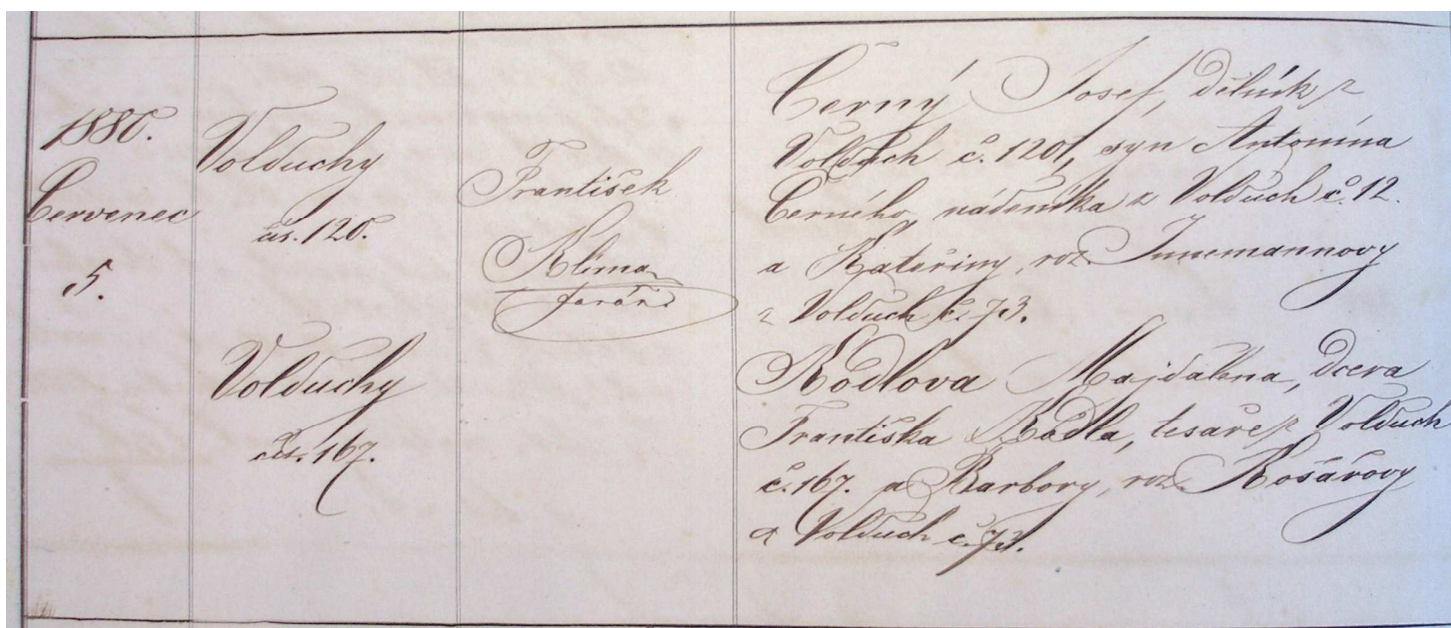 1880.
Červenec
5.
Volduchy
čís. 120.
Volduchy
čís. 167.
František
Klíma
farář
Černý Josef, dělník z
Volduch č. 120, syn Antonína
Černého, nádeníka z Volduch č. 12.
a Kateřiny, roz.
z Volduch č. 73.
Rödlova Majdalena, dcera
Františka Rödla, tesaře z Volduch
č. 167. a Barbory, roz.
z Volduch č. 73.